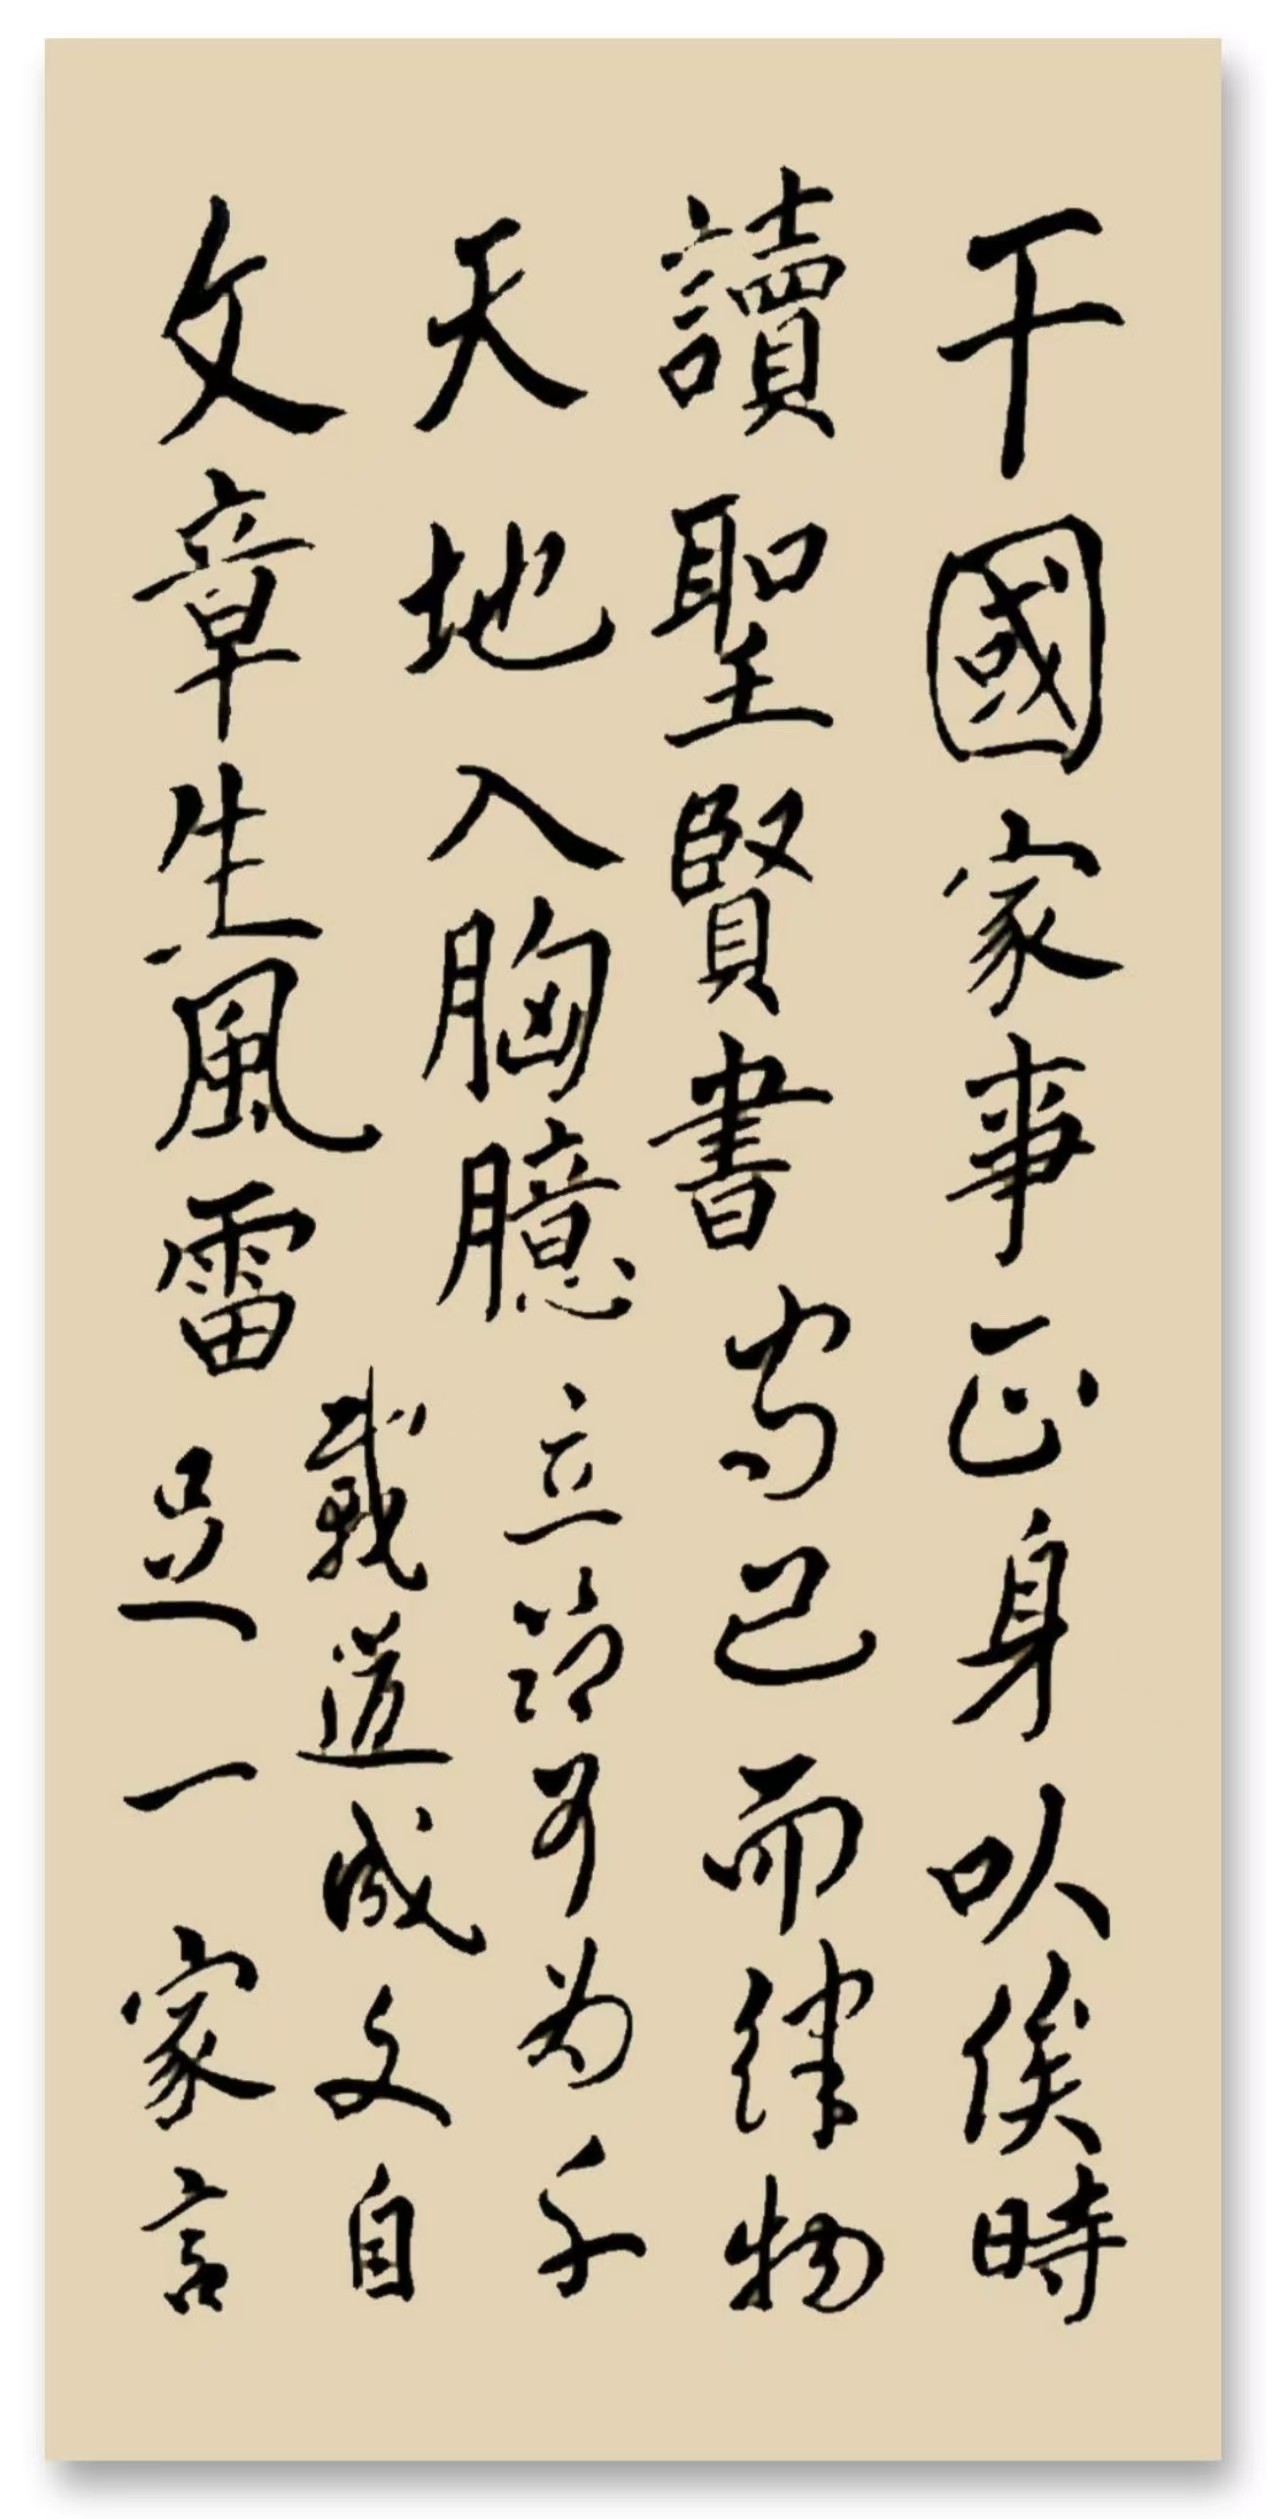 干國家事正身以俟時
讀聖賢書守己而律物
天地入胸臆立節可為千
載道成文自
文章生風雷足一家言